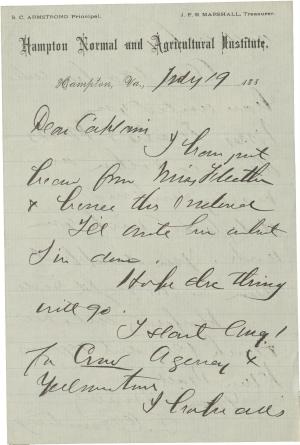 S. C. ARMSTRONG Principal. J. F. B. MARSHALL, Treasurer.
Hampton Normal and Agricultural Institute,
Hampton, Va., July 19 188
Dear Captain
I have just
hear from Miss
& hence this
I'll write her what
I've done.
Hope the thing
will go.
I start Aug 1
for Crow Agency &
Yellowstone
I